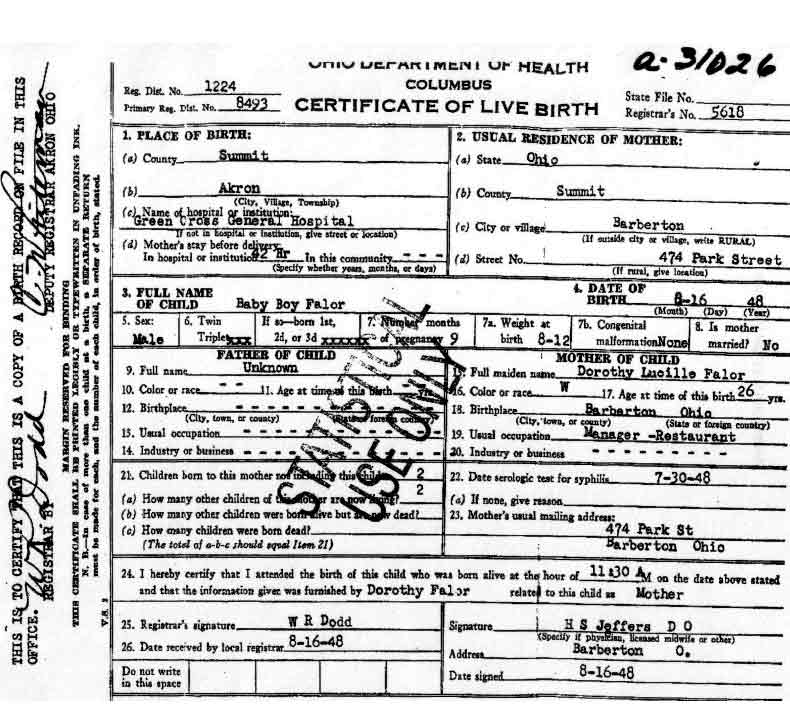 a-31026
OHIO DEPARTMENT OF HEALTH
COLUMBUS
CERTIFICATE OF LIVE BIRTH
Reg. Dist. No. 1224
Primary Reg. Dist. No. 8493
State File No.
Registrar's No. 5618
1. PLACE OF BIRTH:
(a) County Summit
(b) Akron
(City, Village, Township)
(c) Name of hospital or institution:
Green Cross General Hospital
If not in hospital or institution, give street or location)
(d) Mother's stay before delivery:
In hospital or institution 2 Hr In this community - - -
(Specify whether years, months, or days)
2. USUAL RESIDENCE OF MOTHER:
(a) State Ohio
(b) County Summit
(c) City or village Barberton
(If outside city or village, write RURAL)
(d) Street No. 474 Park Street
(If rural, give location)
3. FULL NAME
OF CHILD Baby Boy Falor
4. DATE OF
BIRTH 8-16 48
(Month) (Day) (Year)
5. Sex:
Male
6. Twin
Triplet xxx
If so—born 1st,
2d, or 3d xxxxxx
7. Number months
of pregnancy 9
7a. Weight at
birth 8-12
7b. Congenital
malformation None
8. Is mother
married? No
FATHER OF CHILD
9. Full name Unknown
10. Color or race - - 11. Age at time of this birth - - yrs.
12. Birthplace - - - - - - - -
(City, town, or county) (State or foreign country)
13. Usual occupation - - - - - -
14. Industry or business - - - - - -
MOTHER OF CHILD
15. Full maiden name Dorothy Lucille Falor
16. Color or race W 17. Age at time of this birth 26 yrs.
18. Birthplace Barberton Ohio
(City, town, or county) (State or foreign country)
19. Usual occupation Manager -Restaurant
20. Industry or business - - - - -
21. Children born to this mother not including this child 2
(a) How many other children of this mother are now living? 2
(b) How many other children were born alive but are now dead?
(c) How many children were born dead?
(The total of a-b-c should equal Item 21)
STATISTICAL
USE ONLY
22. Date serologic test for syphilis 7-30-48
(a) If none, give reason
23. Mother's usual mailing address:
474 Park St
Barberton Ohio
24. I hereby certify that I attended the birth of this child who was born alive at the hour of 11:30 A M on the date above stated
and that the information given was furnished by Dorothy Falor related to this child as Mother
25. Registrar's signature W R Dodd
26. Date received by local registrar 8-16-48
Signature H S Jeffers D O
(Specify if physician, licensed midwife or other)
Address Barberton O.
Date signed 8-16-48
Do not write
in this space
THIS IS TO CERTIFY THAT THIS IS A COPY OF A BIRTH RECORD ON FILE IN THIS
OFFICE.
REGISTRAR BY DEPUTY REGISTRAR AKRON OHIO
W R Dodd
MARGIN RESERVED FOR BINDING
THIS CERTIFICATE SHALL BE PRINTED LEGIBLY OR TYPEWRITTEN IN UNFADING INK.
N. B.—In case of more than one child at a birth, a SEPARATE RETURN
must be made for each, and the number of each child, in order of birth, stated.
V.S. 2